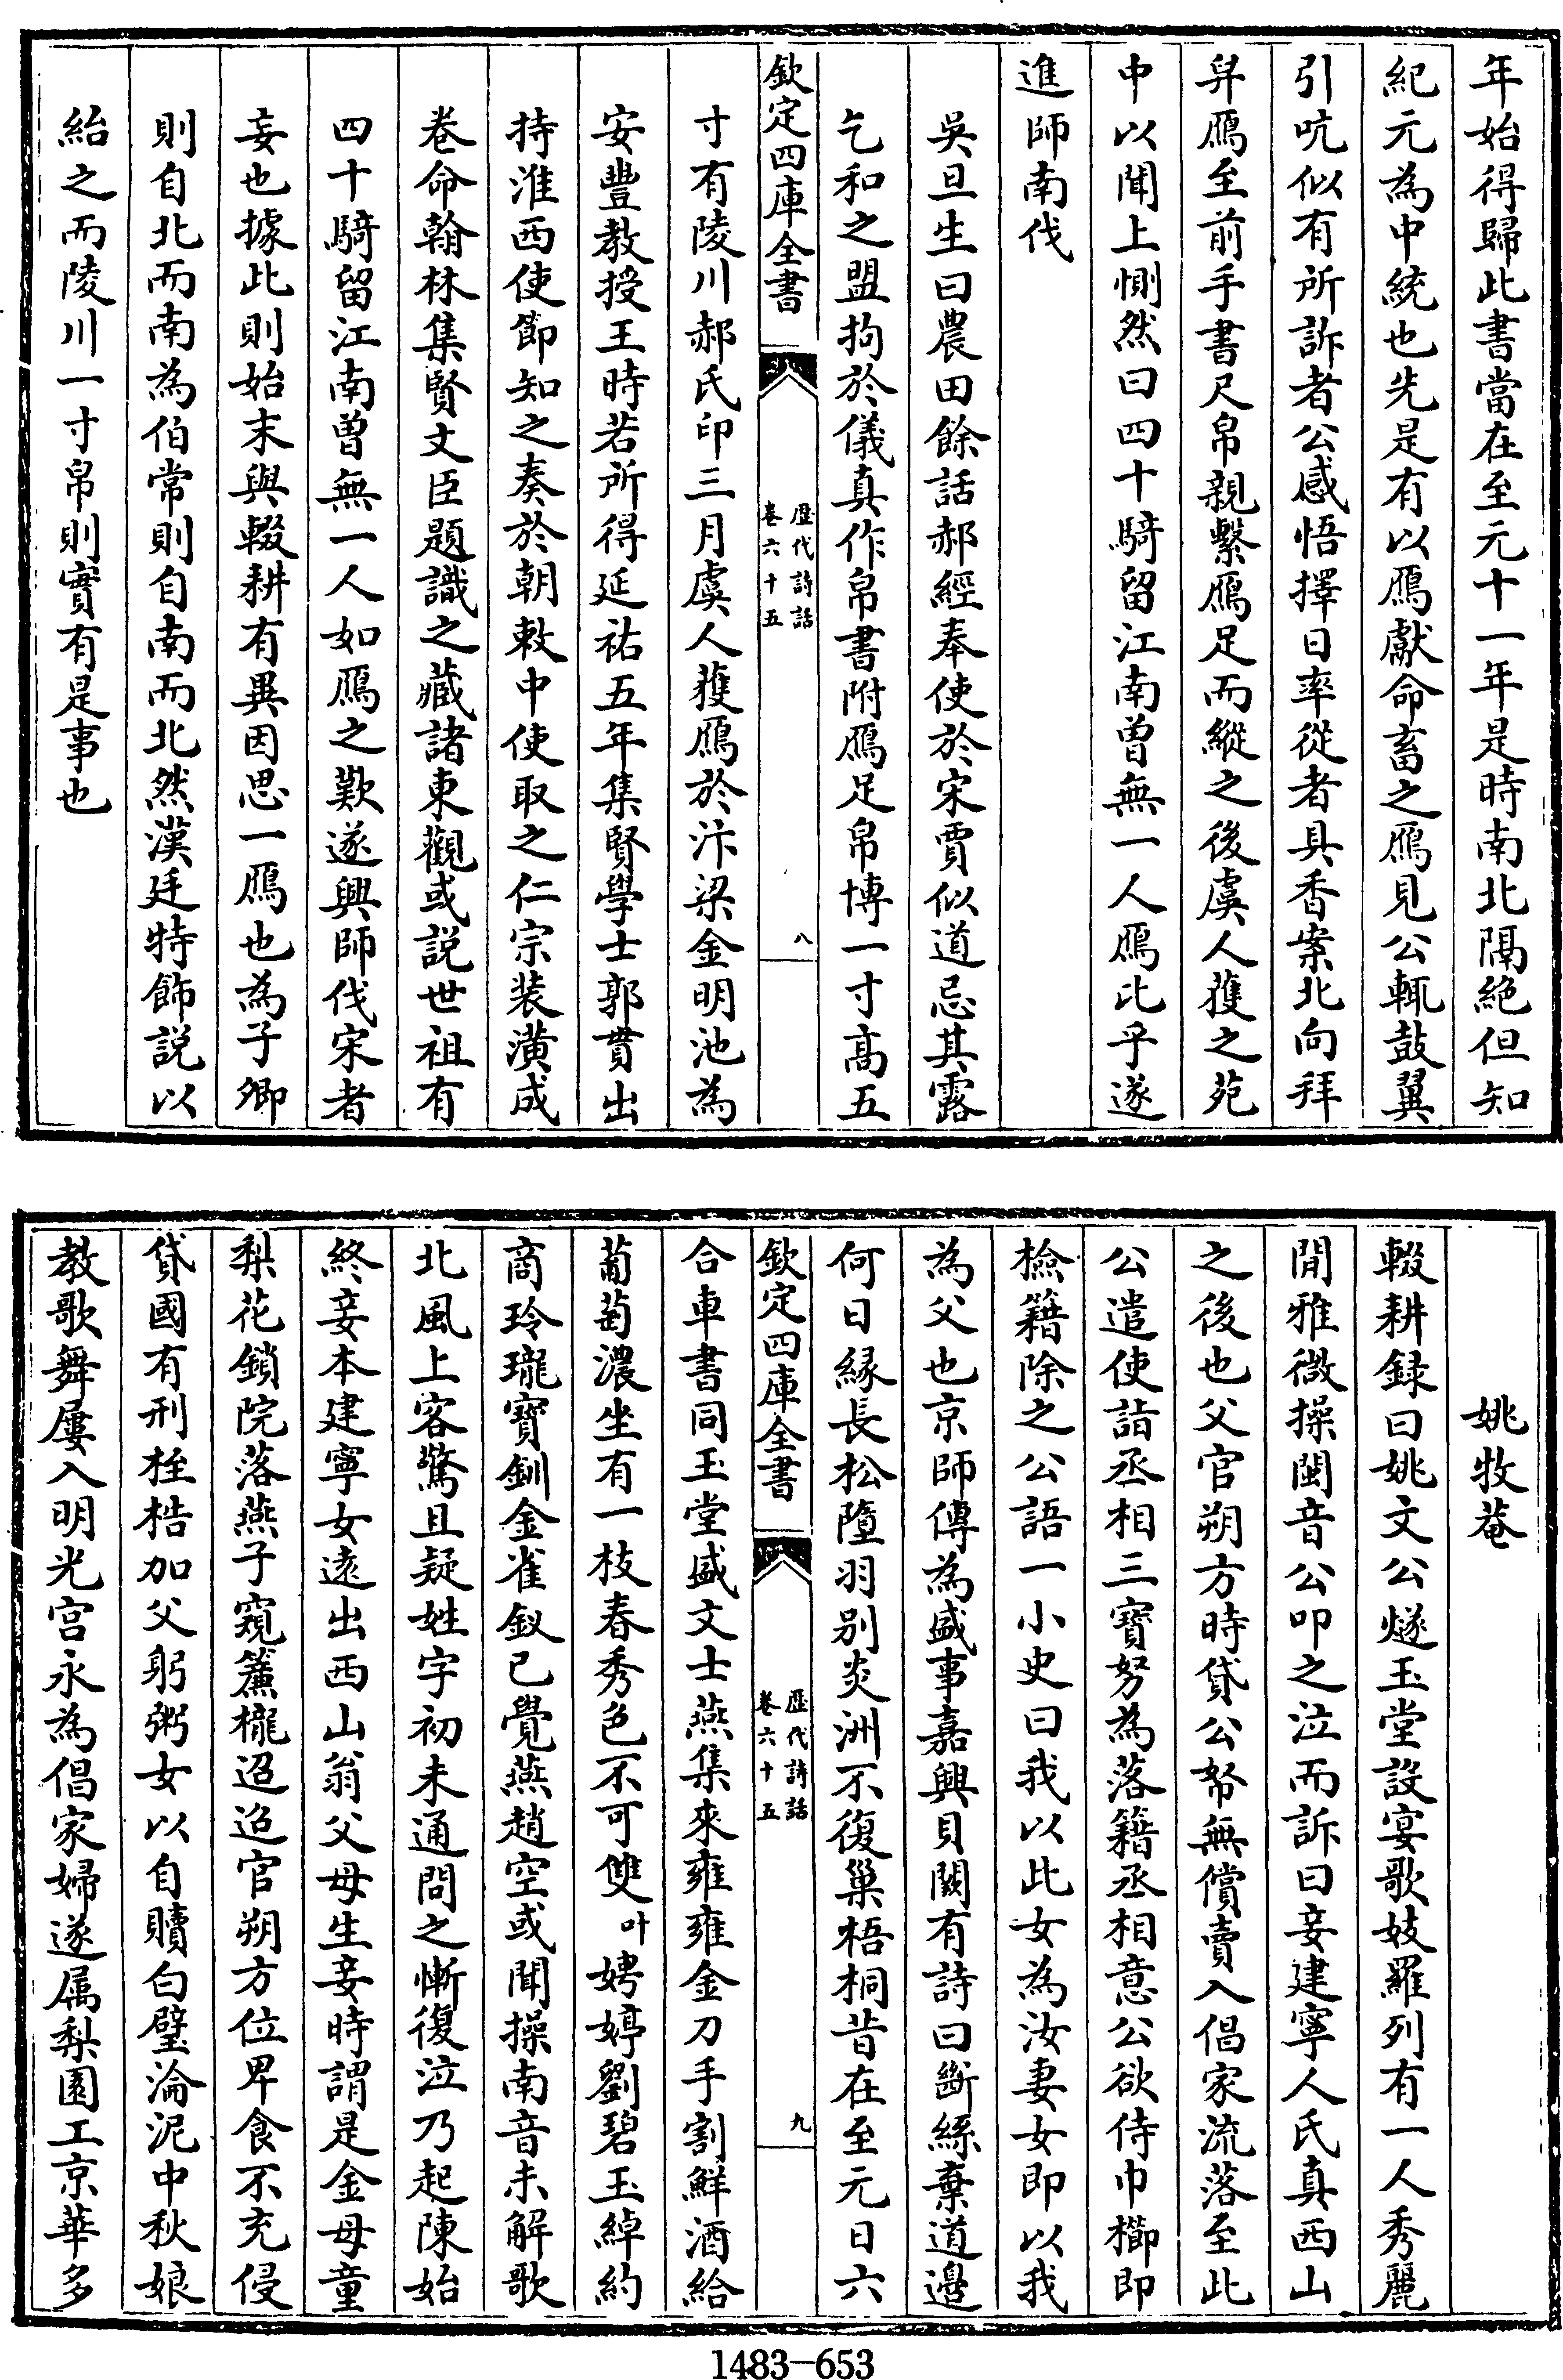 年始得歸此書當在至元十一年是時南北隔絶但知
紀元為中統也先是有以鴈獻命畜之鴈見公輒鼓翼
引吭似有所訴者公感悟擇日率從者具香案北向拜
舁鴈至前手書尺帛親繫鴈足而縱之後虞人獲之苑
中以聞上惻然曰四十騎留江南曽無一人鴈比乎遂
進師南伐
吳旦生曰農田餘話郝經奉使於宋賈似道忌其露
乞和之盟拘於儀真作帛書附鴈足帛博一寸髙五
欽定四庫全書
歴代詩話
卷六十五
八
寸有陵川郝氏印三月虞人獲鴈於汴梁金明池為
安豐教授王時若所得延祐五年集賢學士郭貫出
持淮西使節知之奏於朝敕中使取之仁宗裝潢成
卷命翰林集賢文臣題識之藏諸東觀或説世祖有
四十騎留江南曽無一人如鴈之歎遂興師伐宋者
妄也據此則始末與輟耕有異因思一鴈也為子卿
則自北而南為伯常則自南而北然漢廷特飾説以
紿之而陵川一寸帛則實有是事也
姚牧菴
輟耕録曰姚文公燧玉堂設宴歌妓羅列有一人秀麗
閒雅微操閩音公叩之泣而訴曰妾建寧人氏真西山
之後也父官朔方時貸公帑無償賣入倡家流落至此
公遣使詣丞相三寳努為落籍丞相意公欲侍巾櫛即
檢籍除之公語一小史曰我以此女為汝妻女即以我
為父也京師傳為盛事嘉興貝闕有詩曰斷絲棄道邉
何日縁長松墮羽别炎洲不復巢梧桐昔在至元日六
欽定四庫全書
歴代詩話
卷六十五
九
合車書同玉堂盛文士燕集來雍雍金刀手割鮮酒給
葡萄濃坐有一枝春秀色不可雙叶娉婷劉碧玉綽約
商玲瓏寳釧金雀釵已覺燕趙空或聞操南音未解歌
北風上客驚且疑姓字初未通問之慚復泣乃起陳始
終妾本建寧女逺出西山翁父母生妾時謂是金母童
梨花鎖院落燕子窺簾櫳迢迢官朔方位卑食不充侵
貸國有刑桎梏加父躬粥女以自贖白璧淪泥中秋娘
教歌舞屢入明光宫永為倡家婦遂屬梨園工京華多
1483-653